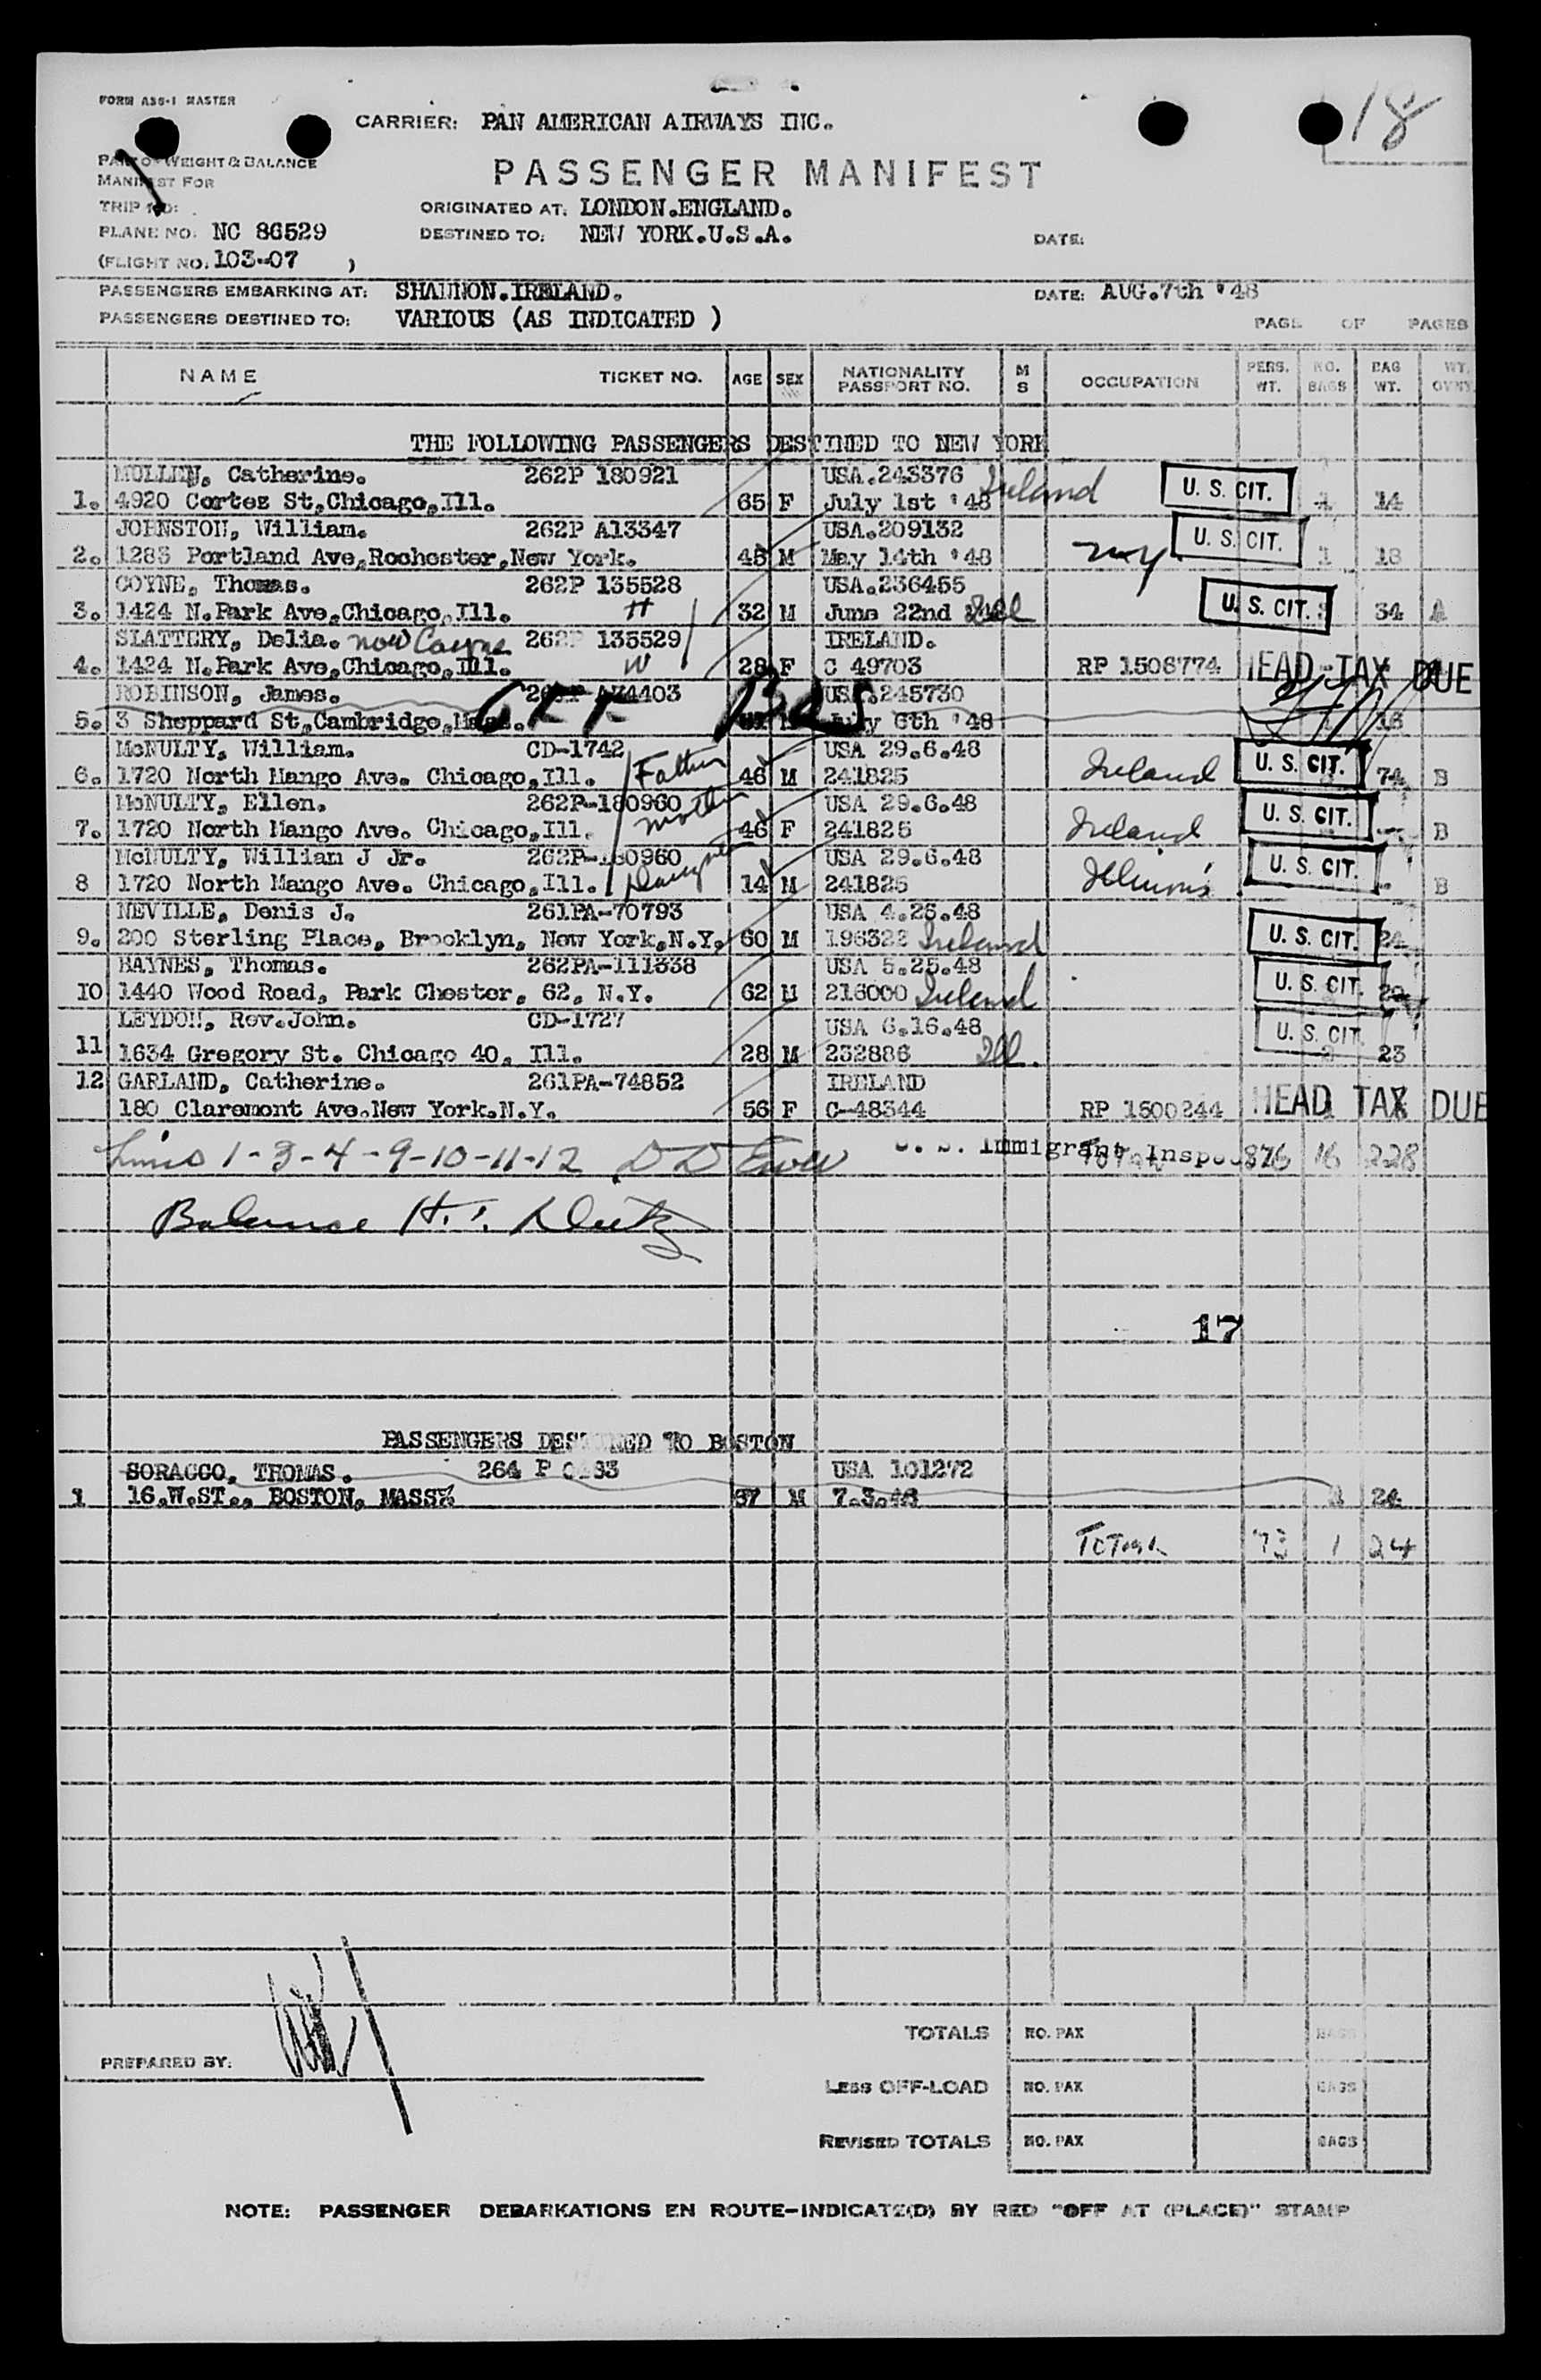 FORM A36-1 MASTER
18
CARRIER: PAN AMERICAN AIRWAYS INC.
WEIGHT & BALANCE
MANIFEST FOR
PASSENGER MANIFEST
TRIP NO:
ORIGINATED AT: LONDON.ENGLAND.
PLANE NO. NC 86529
DESTINED TO: NEW YORK.U.S.A.
DATE:
(FLIGHT NO. 103-07 )
PASSENGERS EMBARKING AT: SHANNON.IRELAND.
DATE: AUG.7th '48
PASSENGERS DESTINED TO: VARIOUS (AS INDICATED )
PAGE OF PAGES
NAME TICKET NO. AGE SEX NATIONALITY PASSPORT NO. M S OCCUPATION PERS. WT. NO. BAGS BAG WT. WT.
THE FOLLOWING PASSENGERS DESTINED TO NEW YORK
MULLEN, Catherine. 262P 180921 USA.243376 Ireland U. S. CIT.
1. 4920 Cortez St,Chicago,Ill. 65 F July 1st '48 1 14
JOHNSTON, William. 262P A13347 USA.209132 U. S. CIT.
2. 1283 Portland Ave,Rochester,New York. 48 M May 14th '48 NY 1 18
COYNE, Thomas. 262P 135528 USA.236455 U. S. CIT.
3. 1424 N.Park Ave,Chicago,Ill. H 32 M June 22nd Ill 34
SLATTERY, Delia. now Coyne 262P 135529 IRELAND.
4. 1424 N.Park Ave,Chicago,Ill. W 28 F C 49703 RP 1508774 HEAD TAX DUE
ROBINSON, James. OFF BOS USA.245730
5. 3 Sheppard St,Cambridge,Mass. July 6th '48 16
McNULTY, William. CD-1742 Father USA 29.6.48 U. S. CIT.
6. 1720 North Mango Ave. Chicago,Ill. 46 M 241825 Ireland 74 B
McNULTY, Ellen. 262P-180960 mother USA 29.6.48 U. S. CIT.
7. 1720 North Mango Ave. Chicago,Ill. 46 F 241826 Ireland B
McNULTY, William J Jr. 262P-180960 USA 29.6.48 U. S. CIT.
8 1720 North Mango Ave. Chicago,Ill. Daughter 14 M 241826 Illinois B
NEVILLE, Denis J. 261PA-70793 USA 4.26.48 U. S. CIT.
9. 200 Sterling Place, Brooklyn, New York,N.Y. 60 M 196322 Ireland 24
HAYNES, Thomas. 262PA-111338 USA 5.25.48 U. S. CIT.
10 1440 Wood Road, Park Chester, 62, N.Y. 62 M 216000 Ireland
LEYDON, Rev.John. CD-1727 USA 6.16.48 U. S. CIT.
11 1634 Gregory St. Chicago 40, Ill. 28 M 232886 Ill. 2 23
12 GARLAND, Catherine. 261PA-74852 IRELAND
180 Claremont Ave.New York.N.Y. 56 F C-48344 RP 1500244 HEAD TAX DUE
Lines 1-3-4-9-10-11-12 U. S. Immigrant 876 16 228
Balance
17
PASSENGERS DESTINED TO BOSTON
SORAGGO, THOMAS. 264 P USA 101272
1 16.W.ST., BOSTON, MASS 37 M 7.3.48 24
Total 73 1 24
TOTALS NO. PAX BAGS
PREPARED BY:
LESS OFF-LOAD NO. PAX BAGS
REVISED TOTALS NO. PAX BAGS
NOTE: PASSENGER DEBARKATIONS EN ROUTE-INDICATE(D) BY RED "OFF AT (PLACE)" STAMP